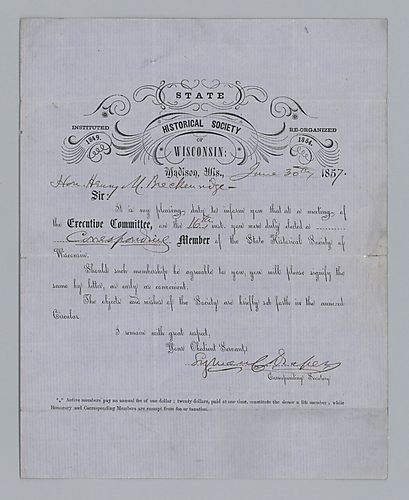 STATE
HISTORICAL SOCIETY
INSTITUTED 1849.
OF
RE-ORGANIZED 1854.
WISCONSIN:
Madison, Wis., June 30th, 1857.
Hon. Henry M. Breckenridge—
Sir:
It is my pleasing duty to inform you that at a meeting of
the Executive Committee, on the 16th inst. you were duly elected a
Corresponding Member of the State Historical Society of
Wisconsin.
Should such membership be agreeable to you, you will please signify the
same by letter, as early as convenient.
The objects and wishes of the Society are briefly set forth in the annexed
Circular.
I remain with great respect,
Your Obedient Servant,
Lyman C. Draper
Corresponding Secretary
*** Active members pay an annual fee of one dollar; twenty dollars, paid at one time, constitute the donor a life member; while
Honorary and Corresponding Members are exempt from fee or taxation.